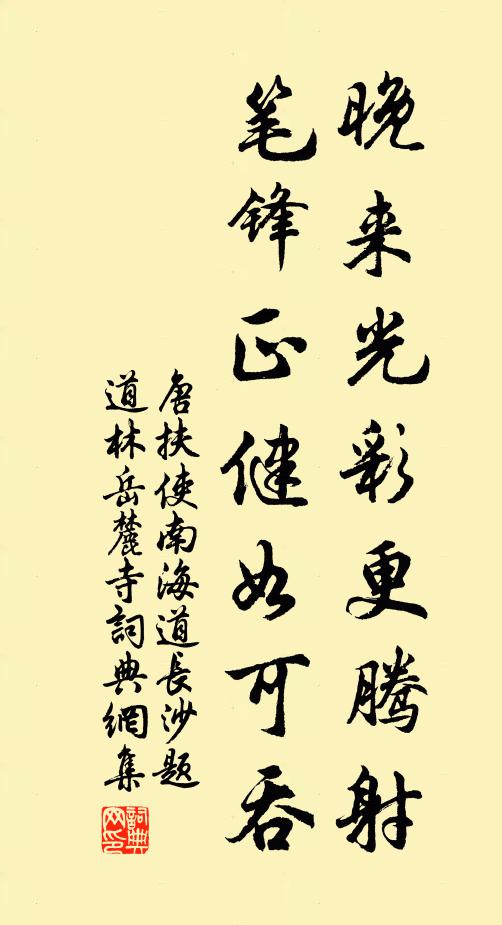 晚来光彩更腾射
笔锋正健如可吞
唐扶使南海道長沙题
道林岳麓寺詞典網集
詞典网印